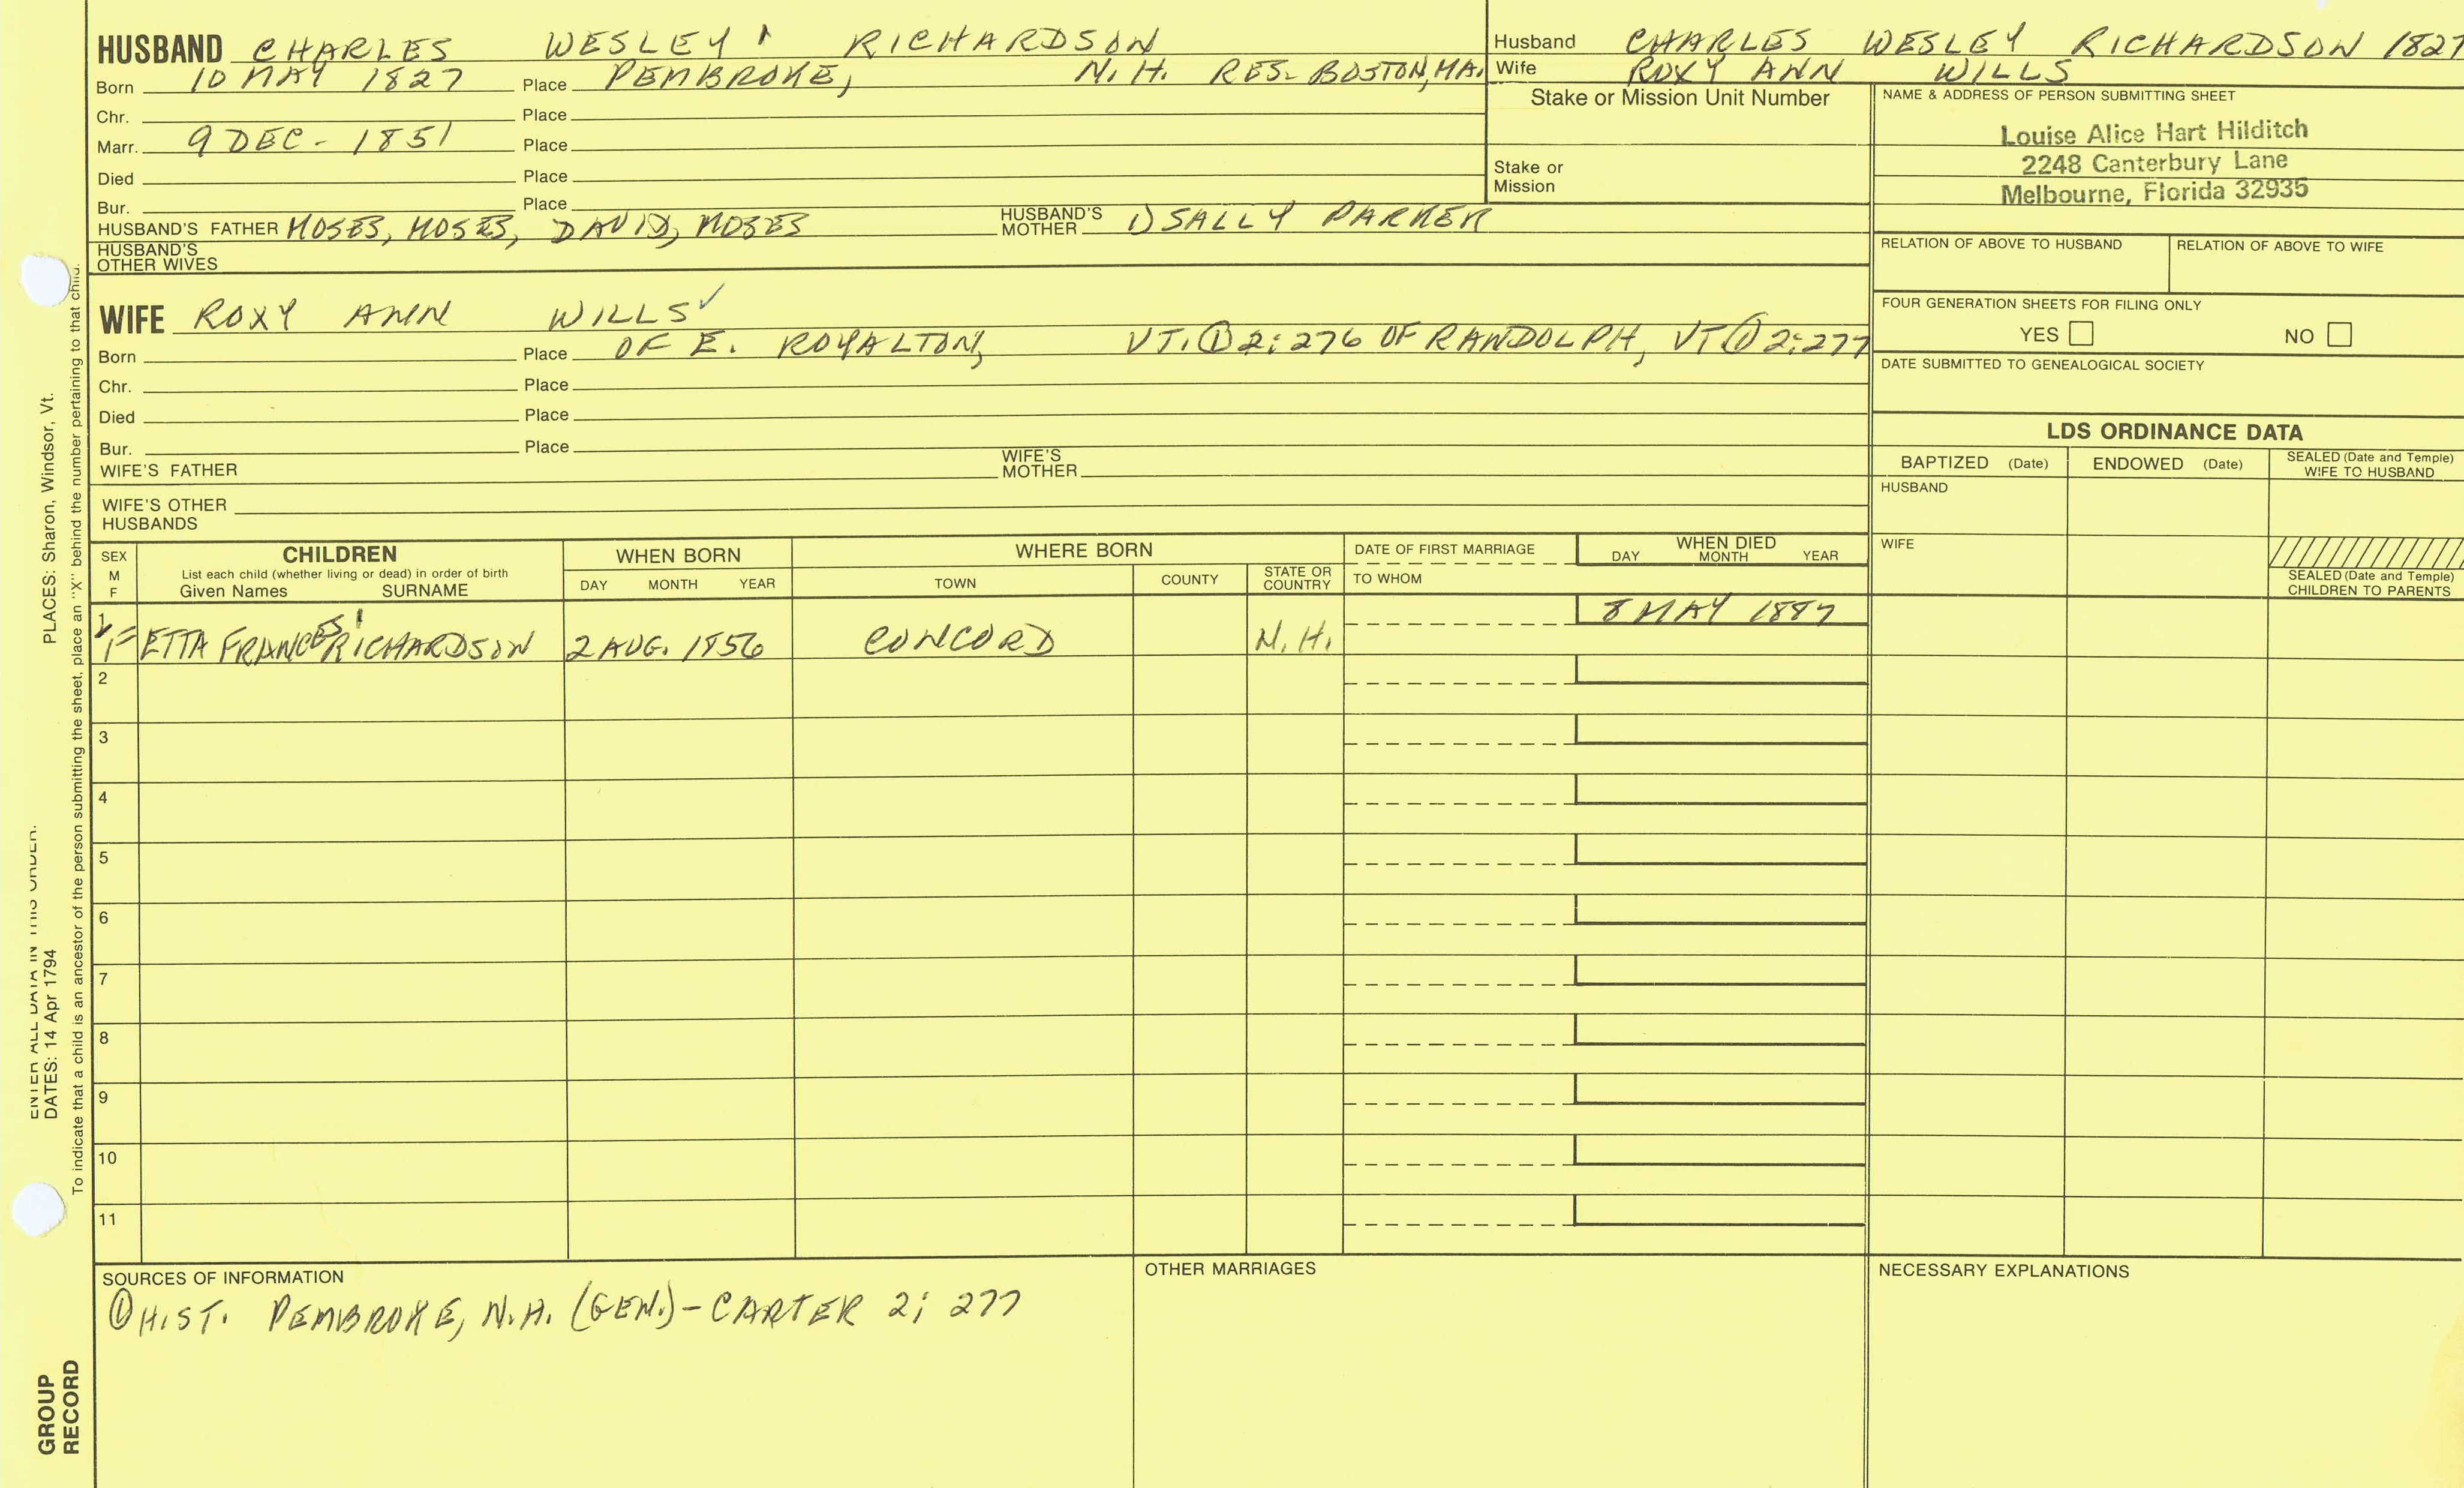 HUSBAND CHARLES WESLEY RICHARDSON
Born 10 MAY 1827 Place PEMBROKE, N.H. RES. BOSTON, MA.
Chr. Place
Marr. 9 DEC - 1851 Place
Died Place
Bur. Place
HUSBAND'S FATHER MOSES, MOSES, DAVID, MOSES HUSBAND'S MOTHER 1) SALLY PARKER
HUSBAND'S OTHER WIVES
Husband CHARLES WESLEY RICHARDSON 1827
Wife ROXY ANN WILLS
Stake or Mission Unit Number
Stake or
Mission
NAME & ADDRESS OF PERSON SUBMITTING SHEET
Louise Alice Hart Hilditch
2248 Canterbury Lane
Melbourne, Florida 32935
RELATION OF ABOVE TO HUSBAND RELATION OF ABOVE TO WIFE
FOUR GENERATION SHEETS FOR FILING ONLY
YES NO
DATE SUBMITTED TO GENEALOGICAL SOCIETY
WIFE ROXY ANN WILLS ✓
Born Place OF E. ROYALTON, VT. ① 2:276 OF RANDOLPH, VT ① 2:277
Chr. Place
Died Place
Bur. Place
WIFE'S FATHER WIFE'S MOTHER
WIFE'S OTHER HUSBANDS
LDS ORDINANCE DATA
BAPTIZED (Date) ENDOWED (Date) SEALED (Date and Temple) WIFE TO HUSBAND
HUSBAND
WIFE
SEALED (Date and Temple) CHILDREN TO PARENTS
SEX M F
CHILDREN
List each child (whether living or dead) in order of birth
Given Names SURNAME
WHEN BORN
DAY MONTH YEAR
WHERE BORN
TOWN COUNTY STATE OR COUNTRY
DATE OF FIRST MARRIAGE
TO WHOM
WHEN DIED
DAY MONTH YEAR
1 F ETTA FRANCES RICHARDSON 2 AUG. 1856 CONCORD N.H. 8 MAY 1887
2
3
4
5
6
7
8
9
10
11
SOURCES OF INFORMATION
① HIST. PEMBROKE, N.H. (GEN.) - CARTER 2; 277
OTHER MARRIAGES
NECESSARY EXPLANATIONS
ENTER ALL DATA IN THIS ORDER:
DATES: 14 Apr 1794 PLACES: Sharon, Windsor, Vt.
To indicate that a child is an ancestor of the person submitting the sheet, place an "X" behind the number pertaining to that child.
GROUP
RECORD